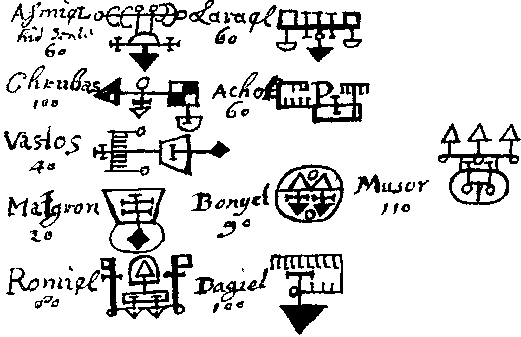 Asmiel
60
Laraql
60
Chrubas
100
Achot
60
Vaslos
40
Malgron
20
Bonyel
90
Musor
110
Romiel
80
Dagiel
100